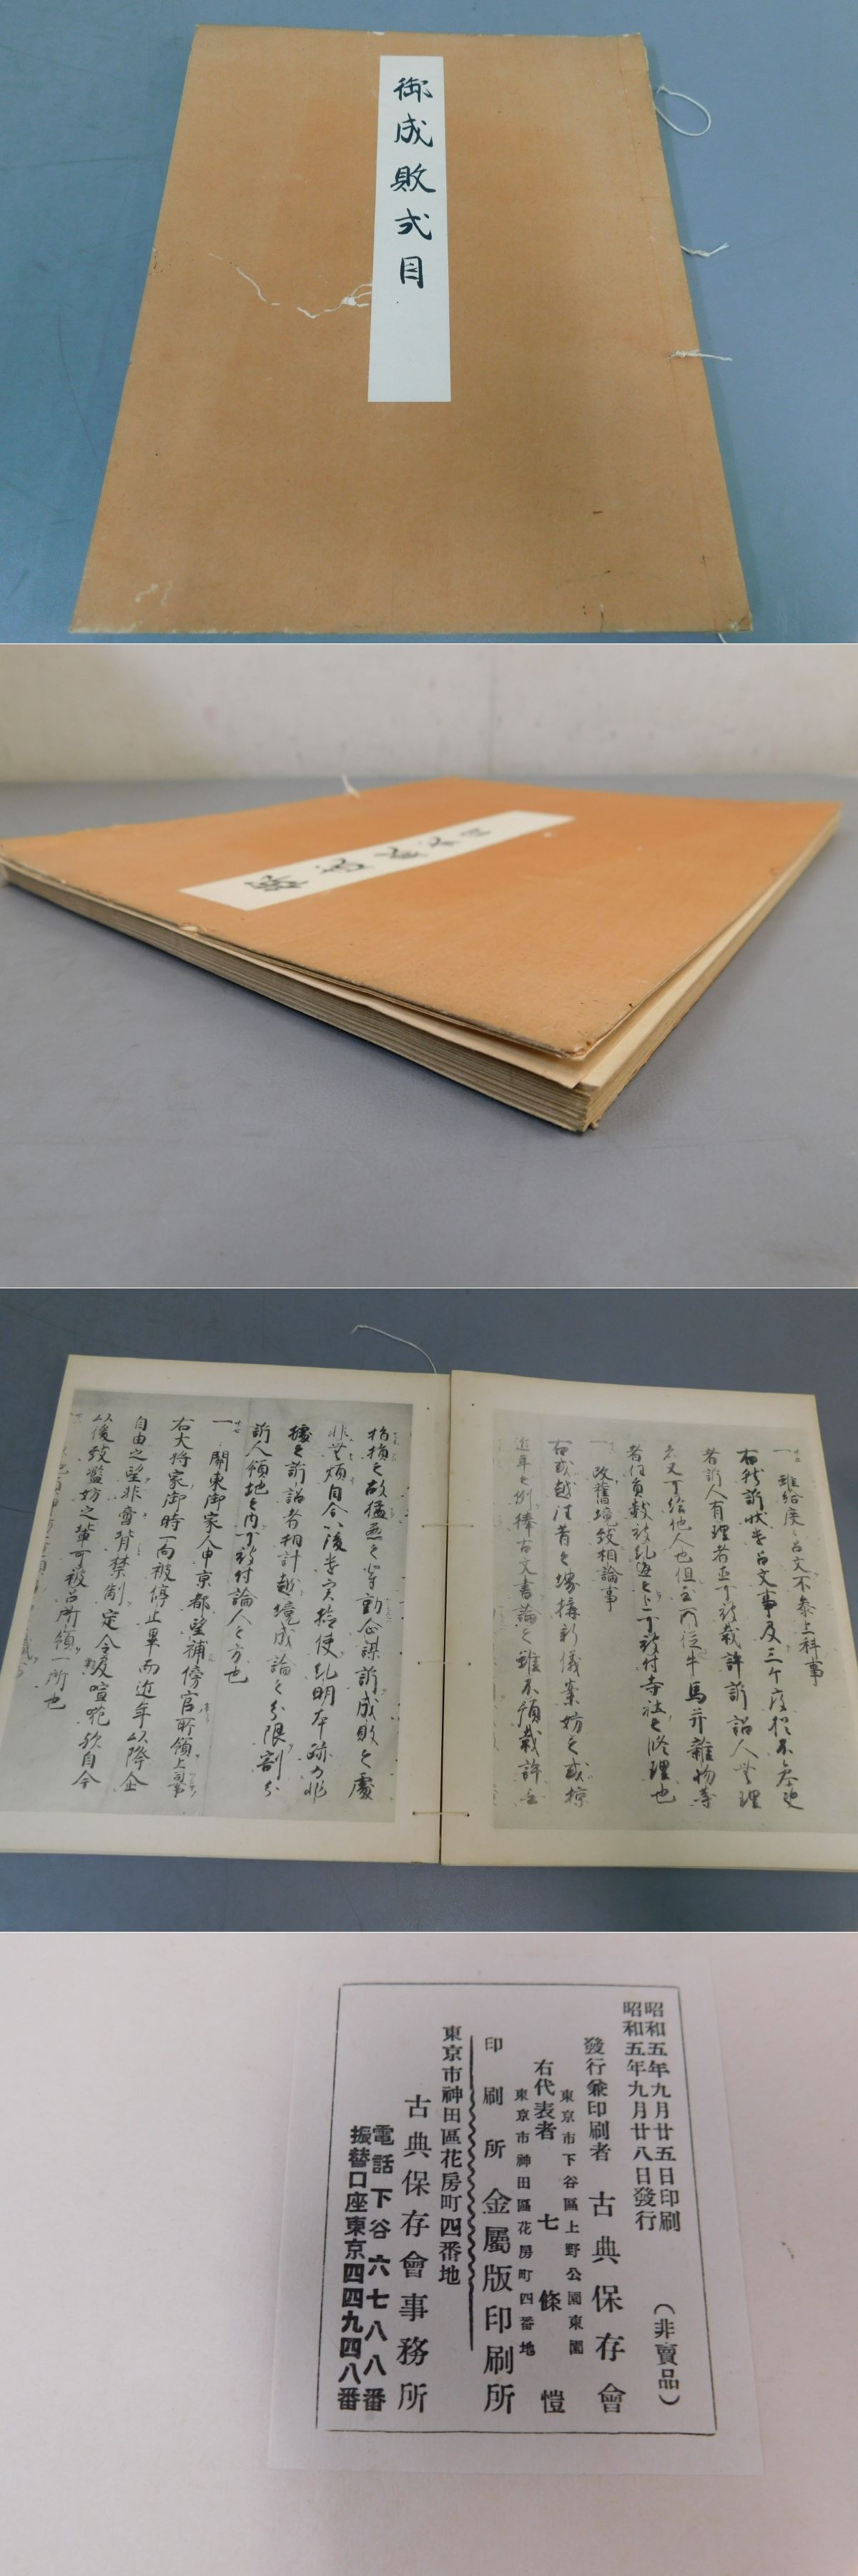 御成敗式目
御成敗式目
一 雖給度々召文不参上科事
右就訴状遣召文事及三ケ度猶不参決
者訴人有理者直可被裁許訴訟人無理
者又可給他人也但至所従牛馬并雑物等
者任員数被糺返之上可被付寺社之修理也
一 改舊境致相論事
右或越往昔之堺構新儀案妨之或掠
近年之例捧古文書論之雖不預裁許無
指損之故猛悪之輩動企謀訴成敗之處
非無煩自今以後遣実検使糺明本跡為非
據之訴訟者相計越境成論之分限割分
訴人領地之内可被付論人之方也
一 関東御家人申京都望補傍官所領上司事
右大将家御時一向被停止畢而近年以降企
自由之望非啻背禁制定令及喧嘩歟自今
以後致濫妨之輩可被召所領一所也
昭和五年九月廿五日印刷
昭和五年九月廿八日發行
(非賣品)
發行兼印刷者 古典保存會
東京市下谷區上野公園東園
右代表者 七條愷
東京市神田區花房町四番地
印刷所 金屬版印刷所
東京市神田區花房町四番地
古典保存會事務所
電話下谷六七八八番
振替口座東京四四九四八番